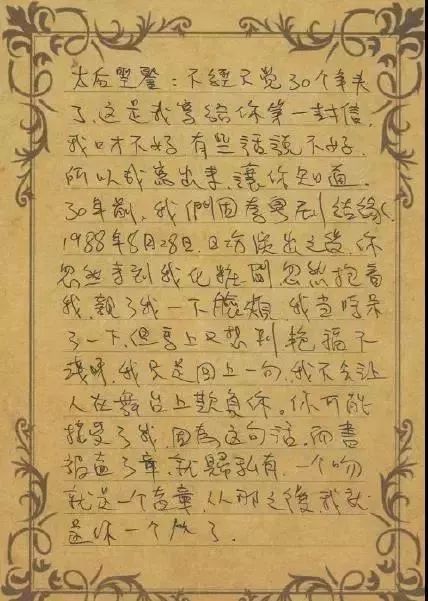 太后聖鑒：不經不覺30个年头
了,这是我寫給你第一封信,
我口才不好 有些話說不好,
所以我寫出来,讓你知道.
30年前,我們因 結緣,
1988年8月28日,日场演出之後,你
忽然走到我化粧間忽然抱着
我,親了我一下臉頰 我当時呆
了一下,但馬上又想到艳福不
淺呀,我只是回上一句,我不会让
人在舞台上欺負你。你可能
接受了我,因為这句话,而
了章,就歸私有,一个吻
就是一个盖章,从那之後,我就
是你一个 了.